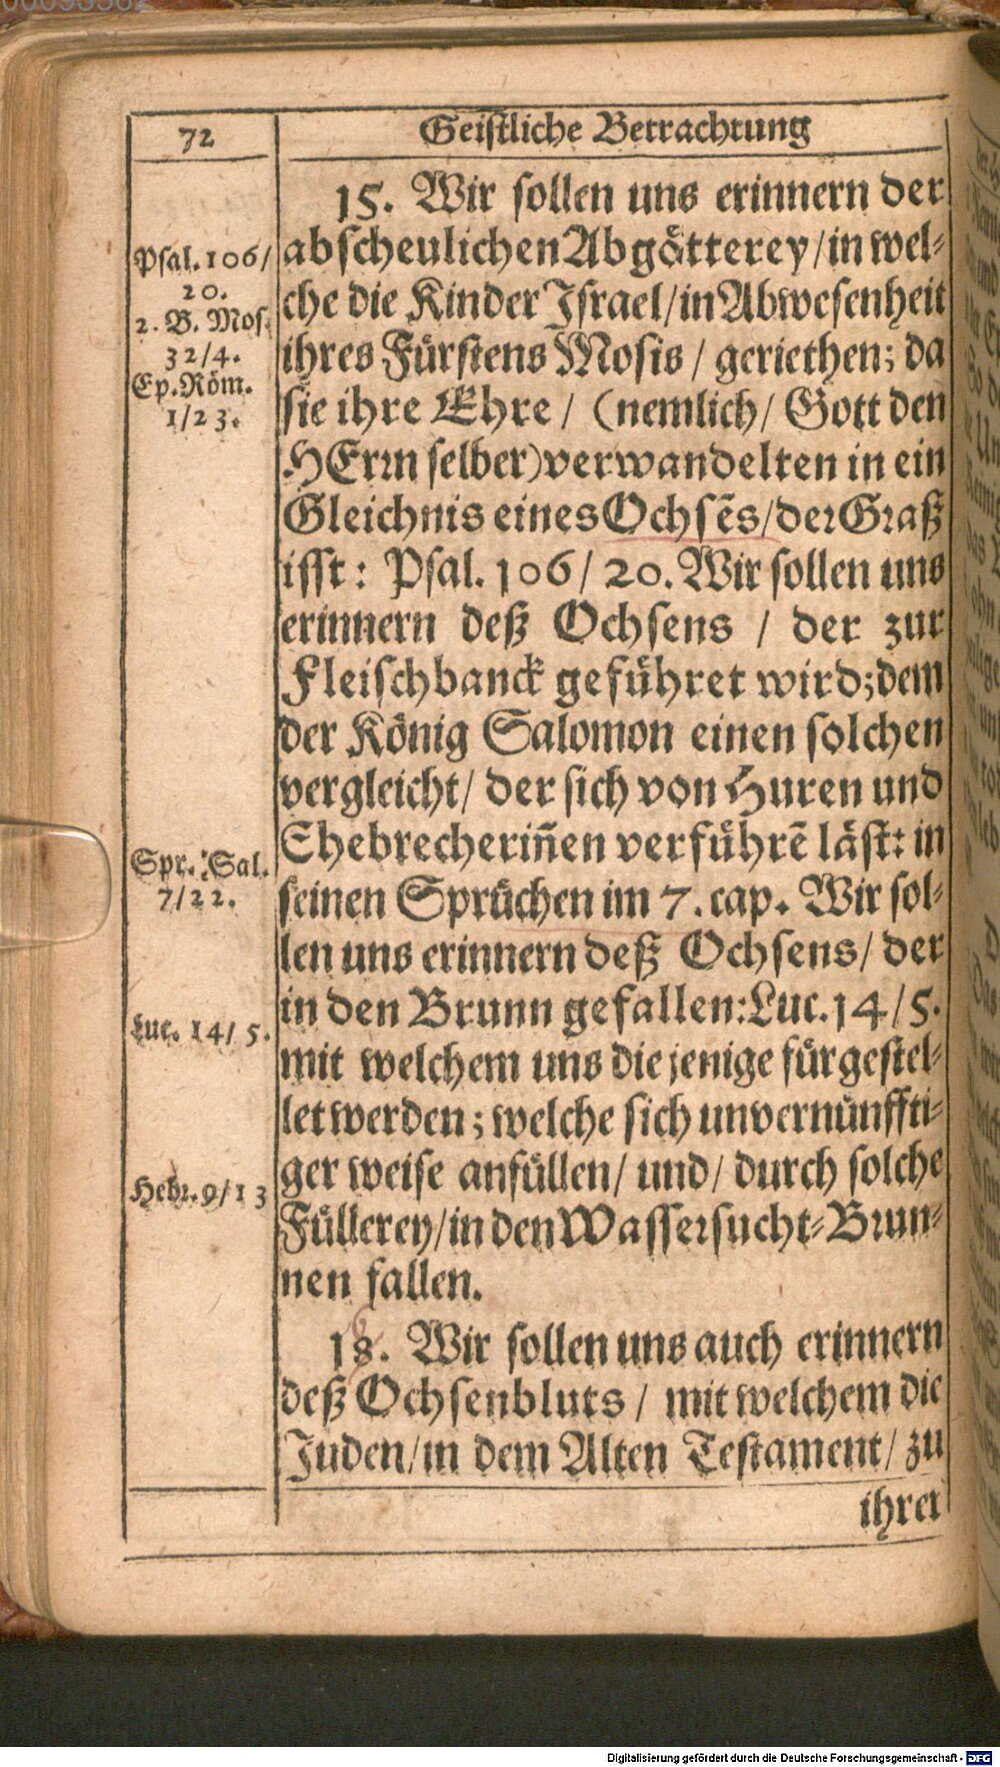 72
Geistliche Betrachtung
15. Wir sollen uns erinnern der
abscheulichen Abgötterey/ in wel⸗
che die Kinder Israel/ in Abwesenheit
ihres Fürstens Mosis / geriethen; da
sie ihre Ehre / (nemlich/ Gott den
HErrn selber) verwandelten in ein
Gleichnis eines Ochsẽs/ der Graß
isst: Psal. 106/ 20. Wir sollen uns
erinnern deß Ochsens / der zur
Fleischbanck geführet wird; dem
der König Salomon einen solchen
vergleicht/ der sich von Huren und
Ehebrecheriñen verführẽ läst: in
seinen Sprüchen im 7. cap. Wir sol⸗
len uns erinnern deß Ochsens/ der
in den Brunn gefallen: Luc. 14/ 5.
mit welchem uns die jenige fürgestel⸗
let werden; welche sich unvernünffti⸗
ger weise anfüllen/ und/ durch solche
Füllerey/ in den Wassersucht⸗Brun⸗
nen fallen.
18. Wir sollen uns auch erinnern
deß Ochsenbluts / mit welchem die
Juden/ in dem Alten Testament/ zu
ihrer
Psal. 106/
20.
2. B. Mos.
32/4.
Ep. Röm.
1/23.
Spr. Sal.
7/22.
Luc. 14/ 5.
Hebr. 9/13
Digitalisierung gefördert durch die Deutsche Forschungsgemeinschaft - DFG